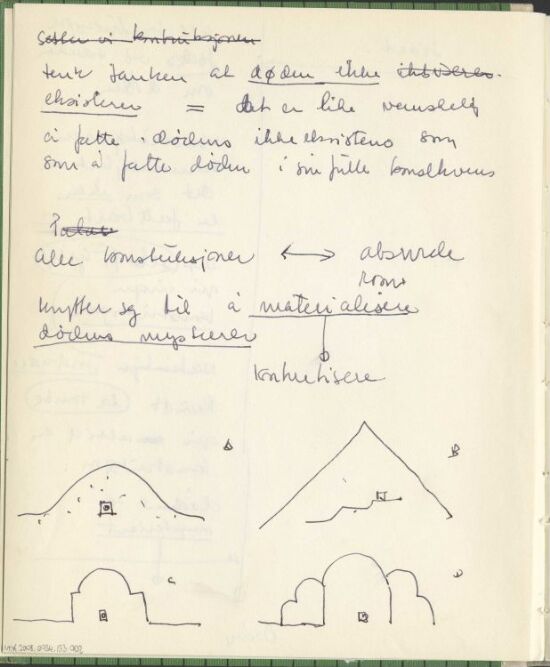 tenk tanken at døden ikke
eksisterer = det er like vanskelig
å fatte dødens ikke eksistens som
som å fatte døden i sin fulle konsekvens
alle konstruksjoner ⟷ absurde
rom
knytter seg til å materialisere
dødens mysterier
konkretisere
A
B
C
D